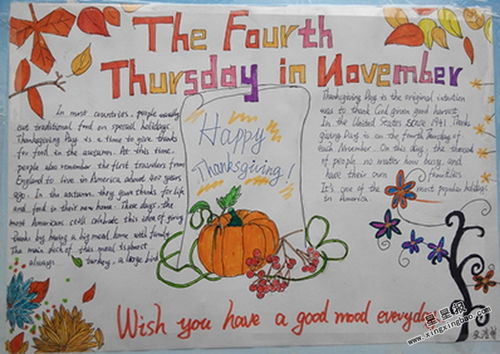 The Fourth
Thursday in November
In most countries, people usually
eat traditional food on special holidays.
Thanksgiving Day is a time to give thanks
for food in the autumn. At this time,
people also remember the first travelers from
England to live in America about 400 years
ago. In the autumn, they gave thanks for life
and food in their new home. These days, the
most Americans still celebrate this idea of giving
thanks by having a big meal home with family.
The main dish of this meal is
always turkey, a large bird
Happy
Thanksgiving!
Thanksgiving Day is the original intention
was to thank God given good harvest.
In the United States since 1941 Thanks
giving Day is on the fourth Thursday of
each November. On this day, the thousands
of people, no matter how busy, and
have their own families
It's one of the most popular holidays
in America.
Wish you have a good mood everyday!
星星报
www.xingxingbao.com